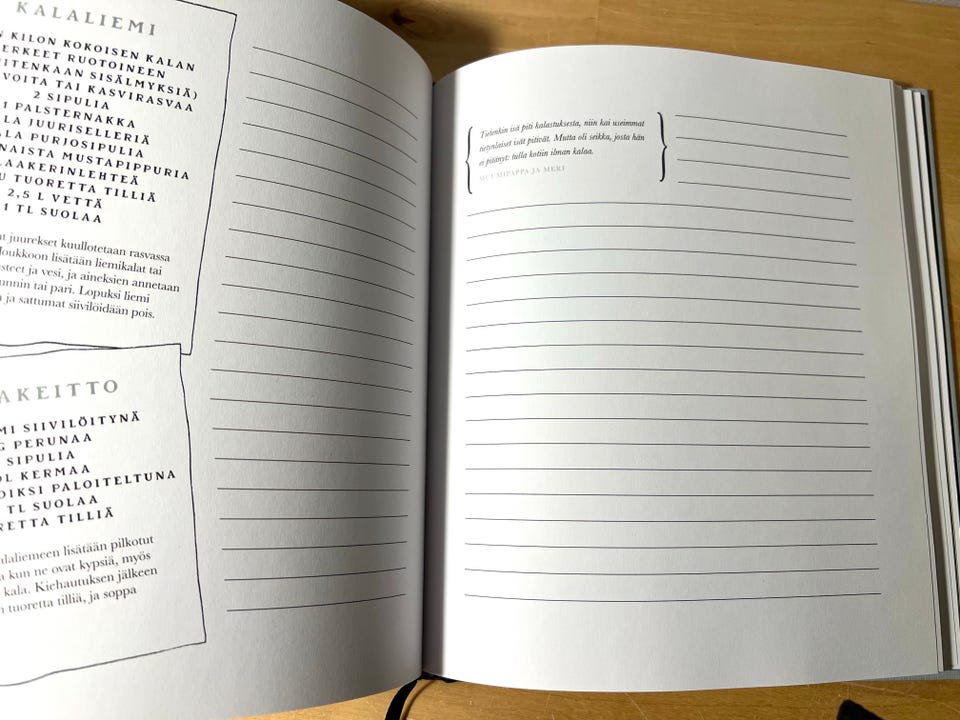 KALALIEMI
KILON KOKOISEN KALAN
RUOTOINEEN
SISÄLMYKSIÄ)
VOITA TAI KASVIRASVAA
2 SIPULIA
1 PALSTERNAKKA
JUURISELLERIÄ
PURJOSIPULIA
MUSTAPIPPURIA
TUORETTA TILLIÄ
2,5 L VETTÄ
1 TL SUOLAA
juurekset kuullotetaan rasvassa
lisätään liemikalat tai
ja vesi, ja aineksien annetaan
tai pari. Lopuksi liemi
ja sattumat siivilöidään pois.
SIIVILÖITYNÄ
PERUNAA
SIPULIA
KERMAA
PALOITELTUNA
TL SUOLAA
TILLIÄ
lisätään pilkotut
kun ne ovat kypsiä, myös
kala. Kiehautuksen jälkeen
tuoretta tilliä, ja soppa
Tietenkin isä piti kalastuksesta, niin kai useimmat
tietynlaiset isät pitivät. Mutta oli seikka, josta hän
ei pitänyt: tulla kotiin ilman kalaa.
MUUMIPAPPA JA MERI